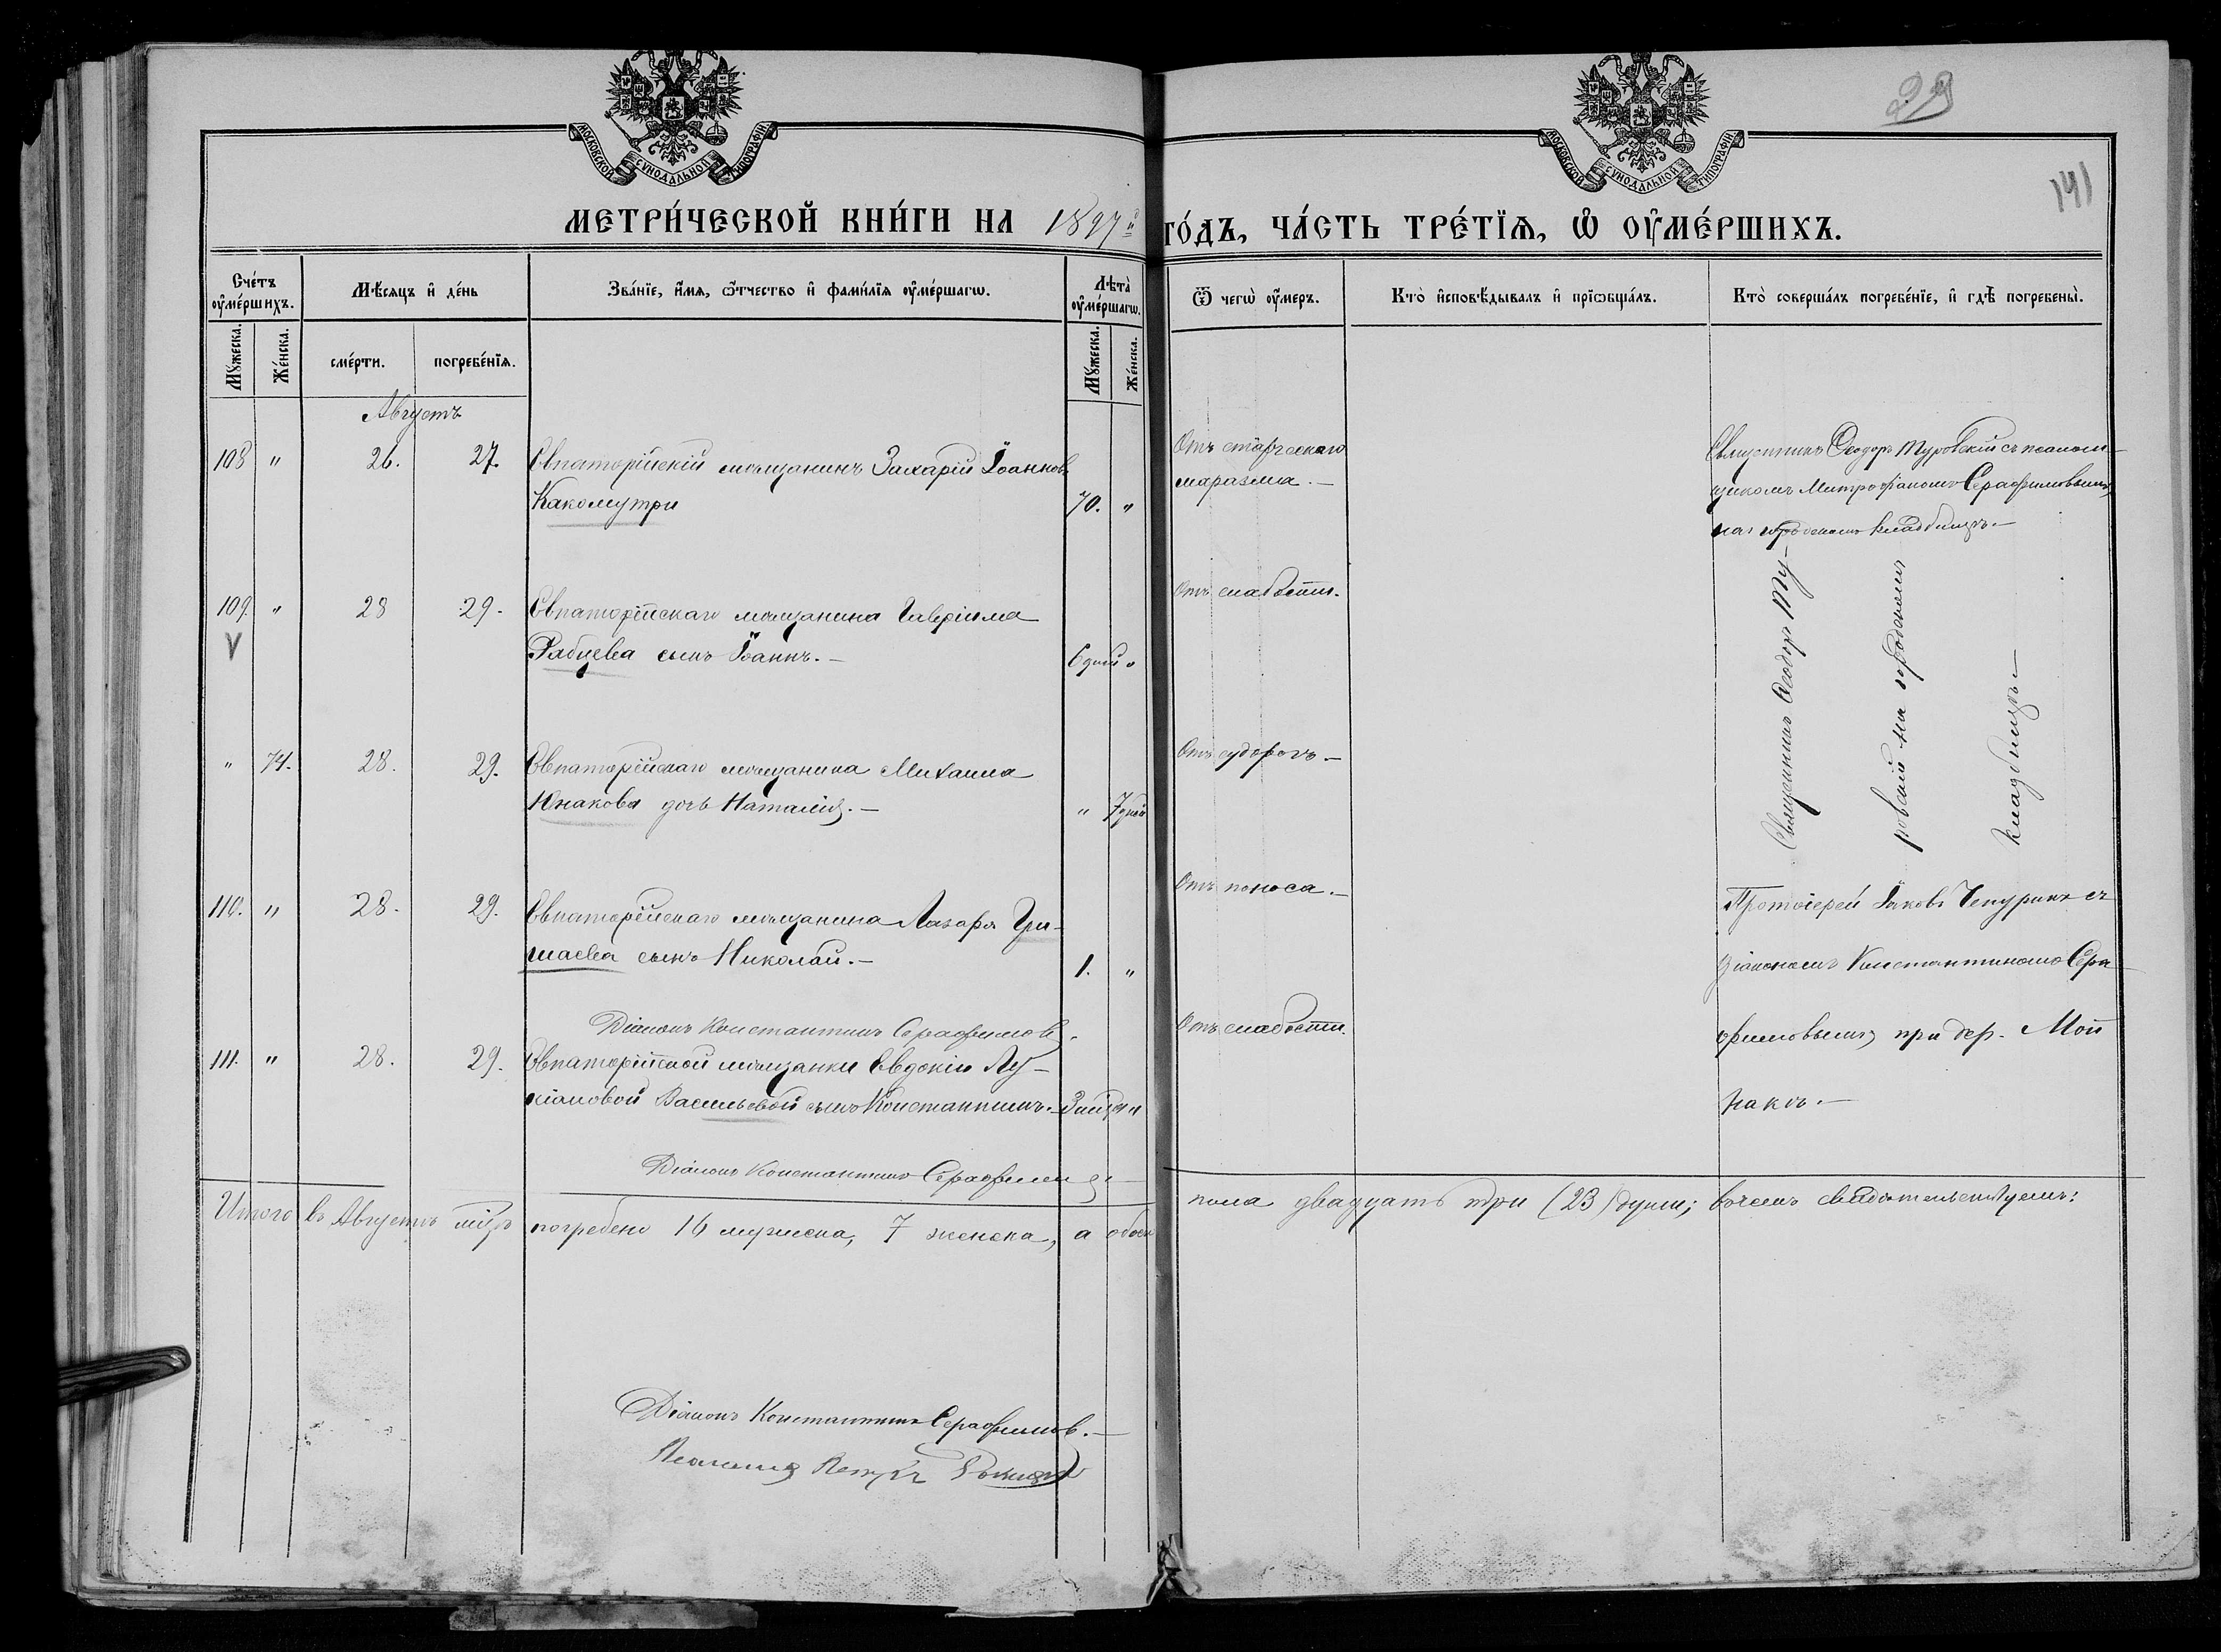 МОСКОВСКОЙ СУНОДАЛЬНОЙ ТИПОГРАФІИ
МОСКОВСКОЙ СУНОДАЛЬНОЙ ТИПОГРАФІИ
29
141
МЕТРИ́ЧЕСКОЙ КНИ́ГИ НА 1897 й ГО́ДЪ, ЧА́СТЬ ТРЕ́ТЇѦ, Ѡ҆ ОУ҆МЕ́РШИХЪ.
Сче́тъ оу҆ме́ршихъ.
Мѣ́сѧцъ и҆ де́нь
Зва́нїе, и҆́мѧ, ѻ҆́тчество и҆ фами́лїѧ оу҆ме́ршагѡ.
Лѣта̀ оу҆ме́ршагѡ.
Ѿ чегѡ̀ оу҆́меръ.
Кто̀ и҆сповѣ́дывалъ и҆ прїѡбща́лъ.
Кто̀ соверша́лъ погребе́нїе, и҆ гдѣ̀ погребены̀.
Мꙋ́жеска.
Же́нска.
сме́рти.
погребе́нїѧ.
Мꙋ́жеска.
Же́нска.
Августъ
108 " 26. 27. Евпаторійскій мѣщанинъ Захарій Іоанновъ
Какомутри 70. "
Отъ старческаго
маразма. —
Священникъ Ѳеодоръ Туровскій съ псалом-
щикомъ Митрофаномъ Серафимовымъ,
на городскомъ кладбищѣ. —
109. " 28 29. Евпаторійскаго мѣщанина Гавріила
V
Рябцева сынъ Іоаннъ. — 6 дней "
Отъ слабости.
Священникъ Ѳеодоръ Ту-
ровскій на городскомъ
кладбищѣ —
" 74. 28. 29. Евпаторійскаго мѣщанина Михаила
Юнакова дочь Наталія. — " 7 дней
Отъ судорогъ. —
110. " 28. 29. Евпаторійскаго мѣщанина Лазаря Гри-
шаева сынъ Николай. — 1. "
Отъ поноса. —
Протоіерей Іаковъ Чепуринъ съ
діакономъ Константиномъ Сера-
фимовымъ, при дер. Мой
накъ. —
Діаконъ Константинъ Серафимовъ.
111. " 28. 29. Евпаторійской мѣщанки Евдокіи Лу-
кіановой Васильевой сынъ Константинъ. — 3 мѣс. "
Отъ слабости.
Діаконъ Константинъ Серафимовъ
Итого въ Августѣ м-цѣ погребено 16 мужеска, 7 женска, а обоего
пола двадцать три (23) души; въ чемъ свидѣтельствуемъ:
Діаконъ Константинъ Серафимовъ. —